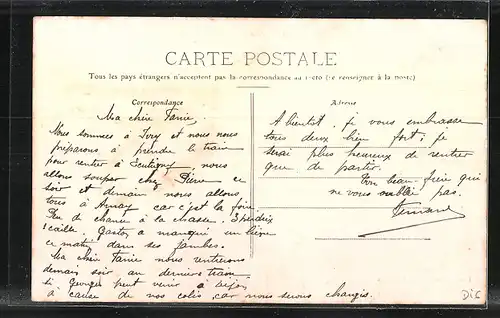 CARTE POSTALE
Tous les pays étrangers n'acceptent pas la correspondance au recto (se renseigner à la poste)
Correspondance
Ma chère Tanie,
Nous sommes à Ivry et nous nous
préparons à prendre le train
pour rentrer à , nous
allons souper chez Pierre ce
soir et demain nous allons
tous à Arnay car c'est la foire
Peu de chance à la chasse. 3 perdrix
1 caille. Gaston a manqué un lièvre
ce matin dans ses jambes.
Ma chère Tanie nous rentrerons
demain soir au dernier train
si Georges peut venir à
à cause de nos colis, car nous serons chargés.
Adresse
A bientôt, je vous embrasse
tous deux bien fort, je
serai plus heureux de rentrer
que de partir.
Ton beau-frère qui
ne vous oublie pas.
Fernand
D16